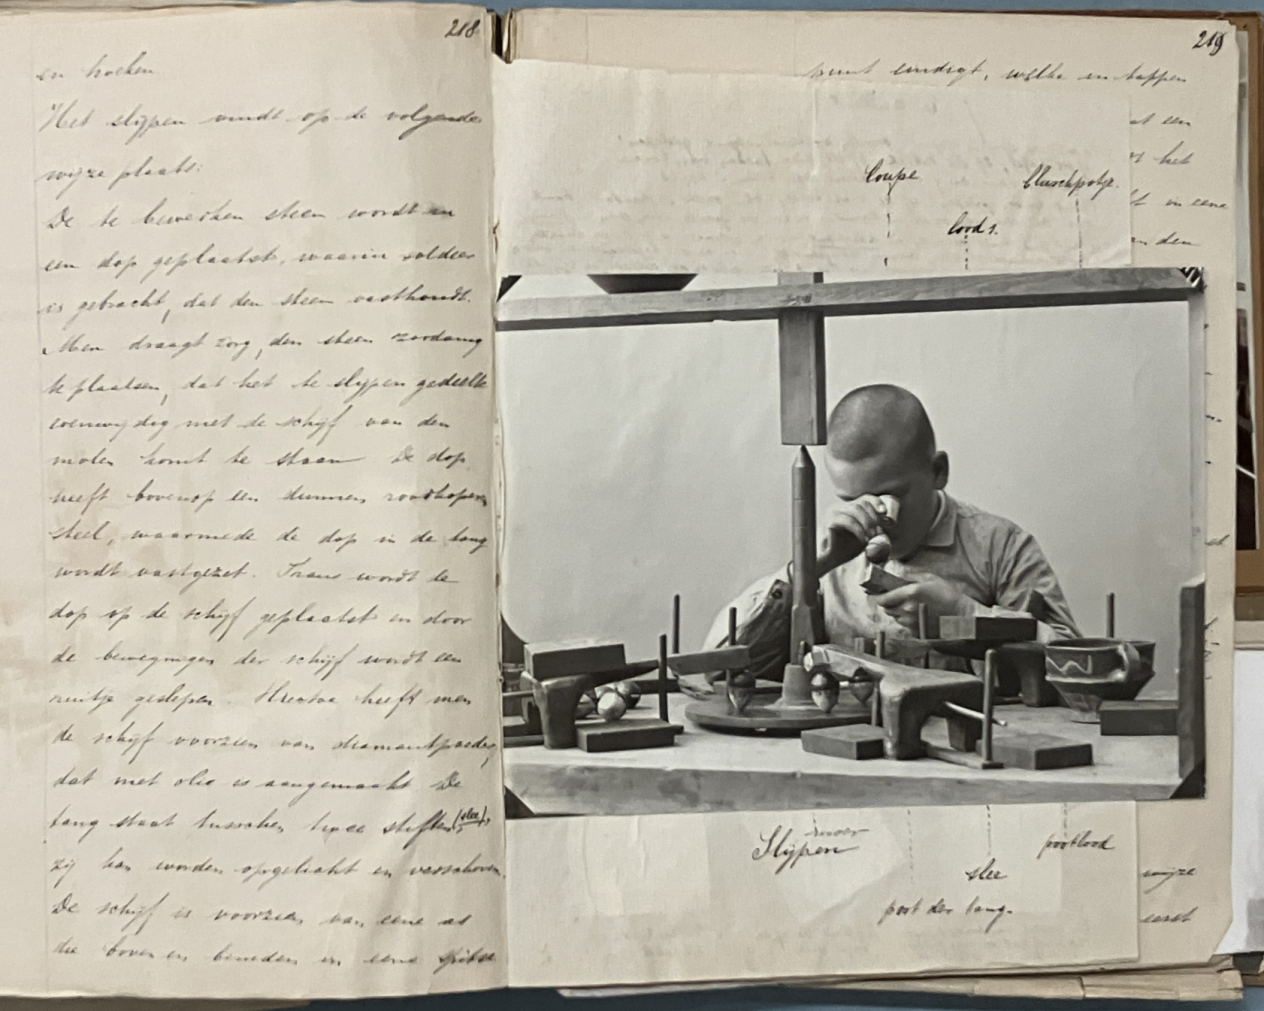 218
en hoeken
Het slijpen vindt op de volgende
wijze plaats:
De te bewerken steen wordt in
een dop geplaatst, waarin soldeer
is gebracht, dat den steen vasthoudt.
Men draagt zorg, den steen zoodanig
te plaatsen, dat het te slijpen gedeelte
evenwijdig met de schijf van den
molen komt te staan De dop
heeft bovenop een dunnen roodkoperen
steel, waarmede de dop in de tang
wordt vastgezet. Trans wordt de
dop op de schijf geplaatst en door
de bewegingen der schijf wordt een
ruitje geslepen. Hiertoe heeft men
de schijf voorzien van diamantpoeder,
dat met olie is aangemaakt De
tang staat tusschen twee stiften (slee),
zij kan worden opgelicht en verschoven.
De schijf is voorzien van eene as
die boven en beneden in eene spitse
219
punt eindigt, welke in tappen
een
het
in eene
den
Loupe
bluschpotje.
lood 1.
Slijpen
slee
pootlood
poot der tang.
wijze
eerst